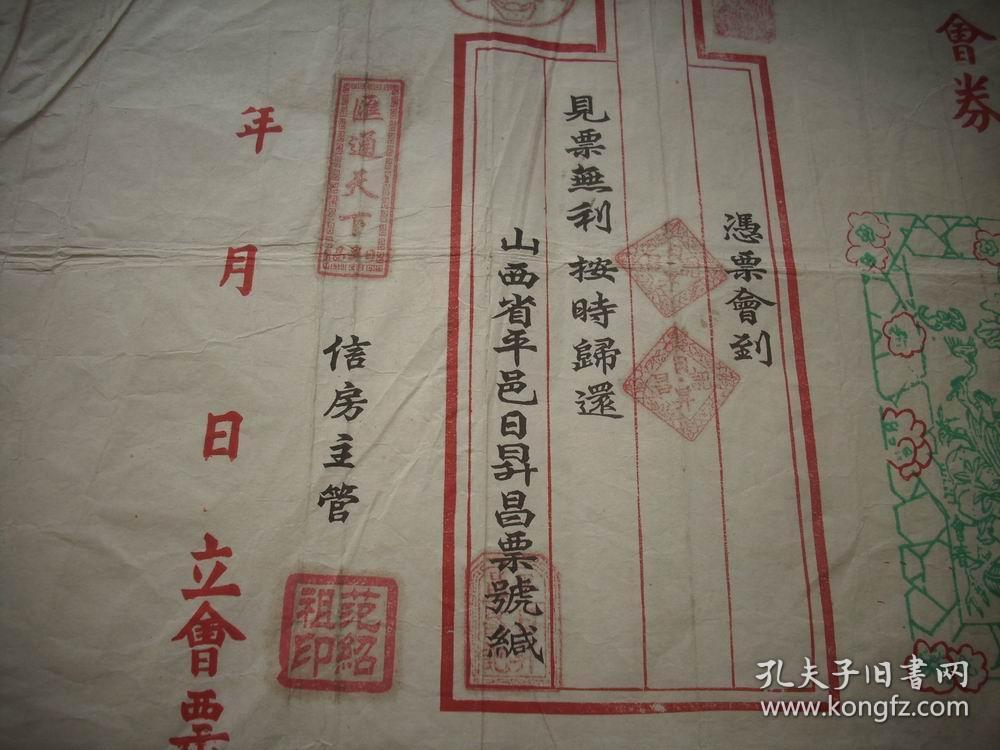 會券
憑票會到
見票無利 按時歸還
山西省平邑日昇昌票號緘
匯通天下
信房主管
范紹祖印
年 月 日 立會票
孔夫子旧書网
www.kongfz.com